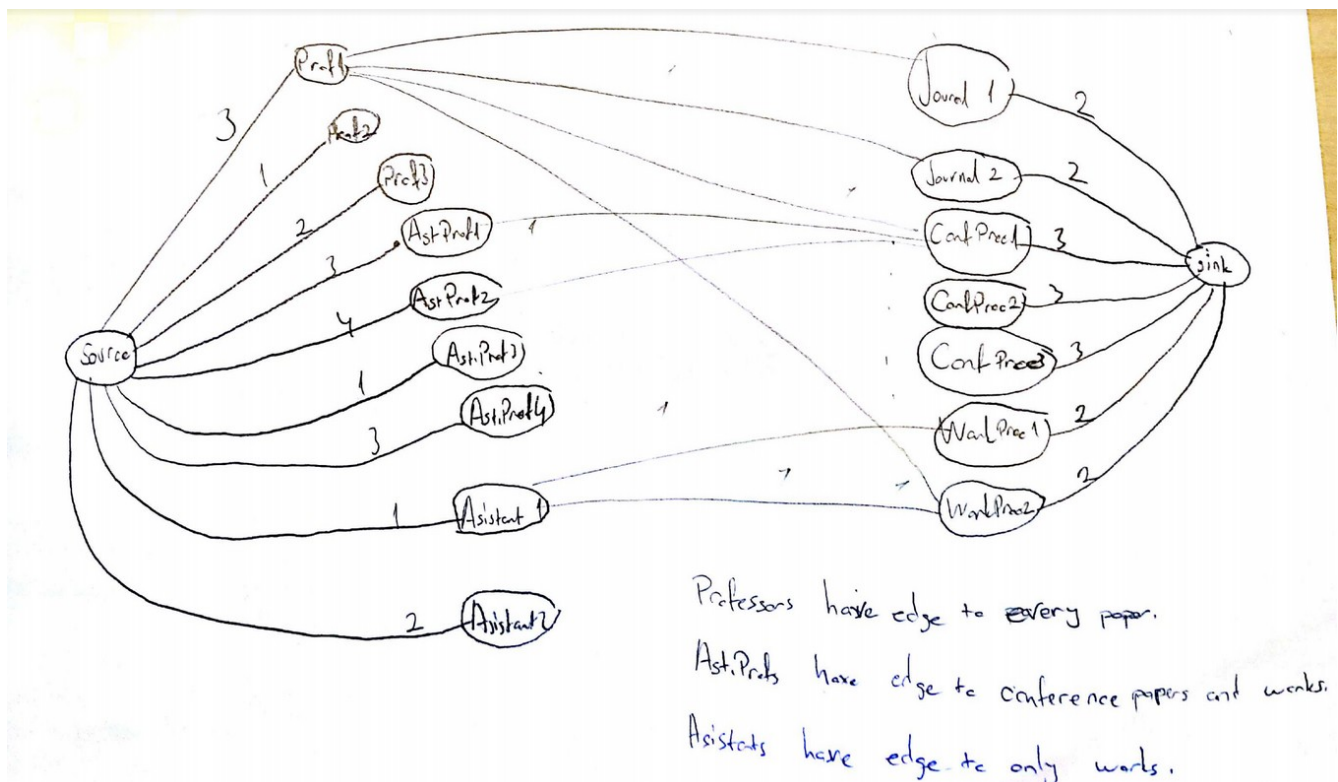 Prof1
3
Prof2
1
Prof3
2
Ast.Prof1
3
1
Ast.Prof2
4
Source
Ast.Prof3
1
Ast.Prof4
3
1
Asistant 1
1
1
1
Asistant2
2
1
1
Journal 1
2
Journal 2
2
ConfProc1
3
sink
ConfProc2
3
ConfProc3
3
WorkProc1
2
WorkProc2
2
Professors have edge to every paper.
Ast.Profs have edge to conference papers and works.
Asistats have edge to only works.